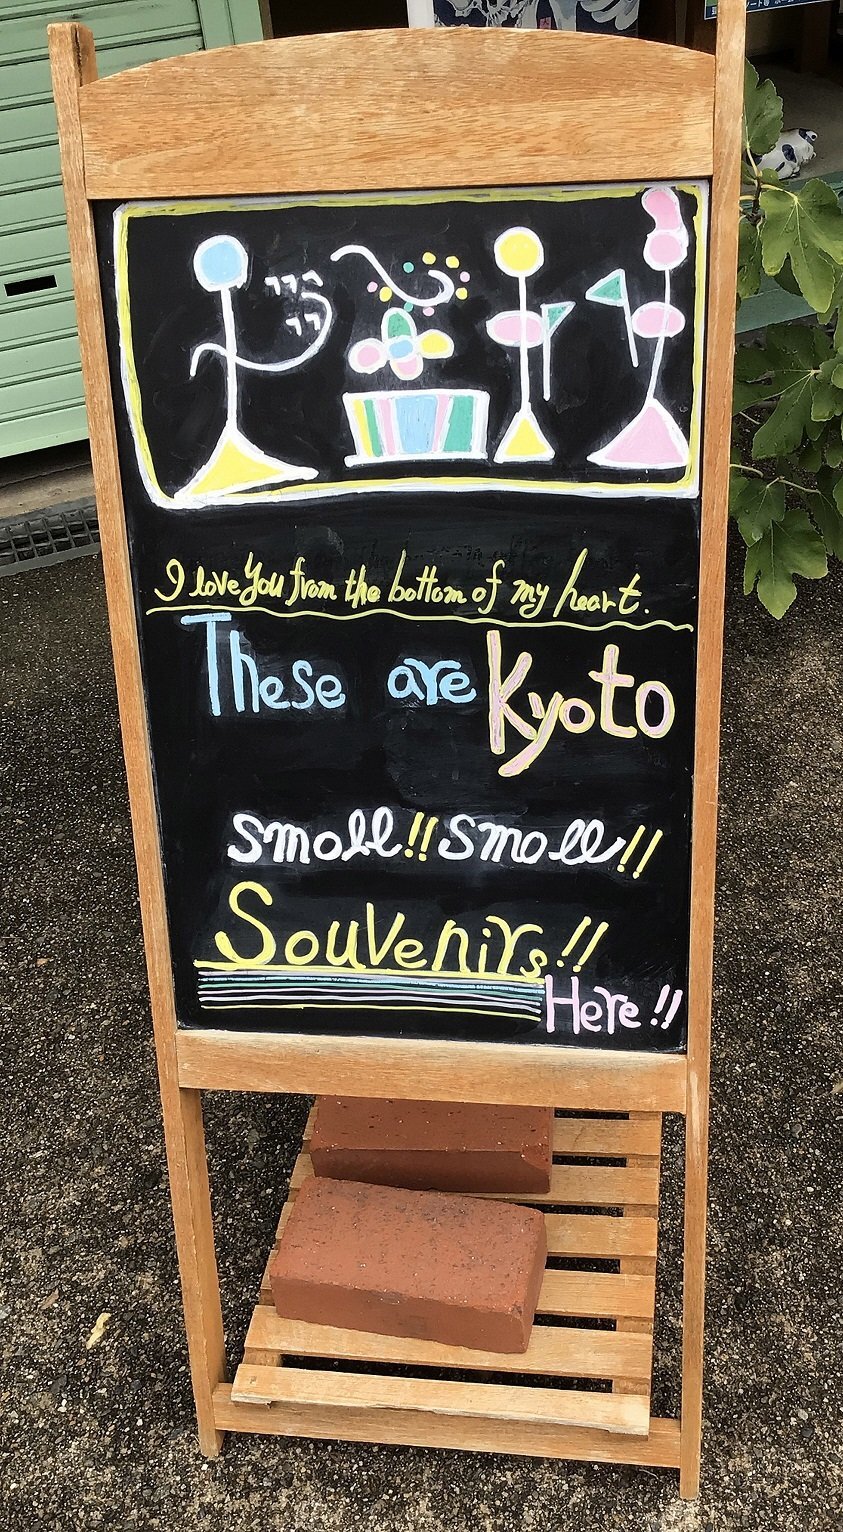 I love you from the bottom of my heart.
These are Kyoto
smoll!! smoll!!
Souvenirs!!
Here!!